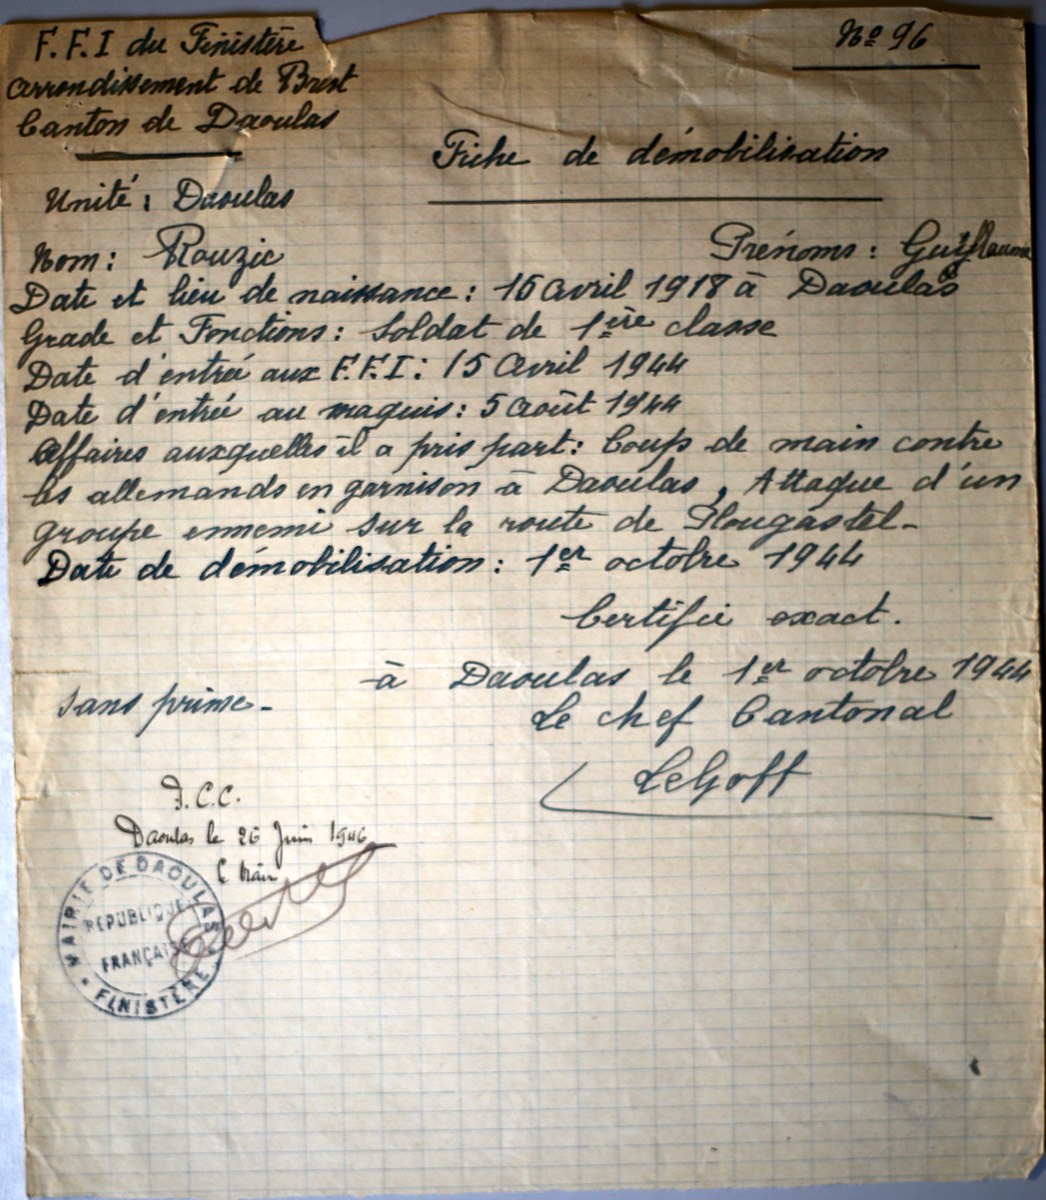 F.F.I du Finistère
arrondissement de Brest
Canton de Daoulas
No 96
Fiche de démobilisation
Unité : Daoulas
Nom : Rouzic Prénoms : Guillaume
Date et lieu de naissance : 16 avril 1918 à Daoulas
Grade et Fonctions : Soldat de 1ère classe
Date d'entrée aux F.F.I : 15 Avril 1944
Date d'entrée au maquis : 5 Août 1944
Affaires auxquelles il a pris part : Coups de main contre
les allemands en garnison à Daoulas, Attaque d'un
groupe ennemi sur la route de Plougastel -
Date de démobilisation : 1er octobre 1944
Certifié exact.
à Daoulas le 1er octobre 1944
sans prime -
Le chef Cantonal
LeGoff
P.C.C.
Daoulas le 26 Juin 1946
Maire
MAIRIE DE DAOULAS
RÉPUBLIQUE
FRANÇAISE
FINISTÈRE